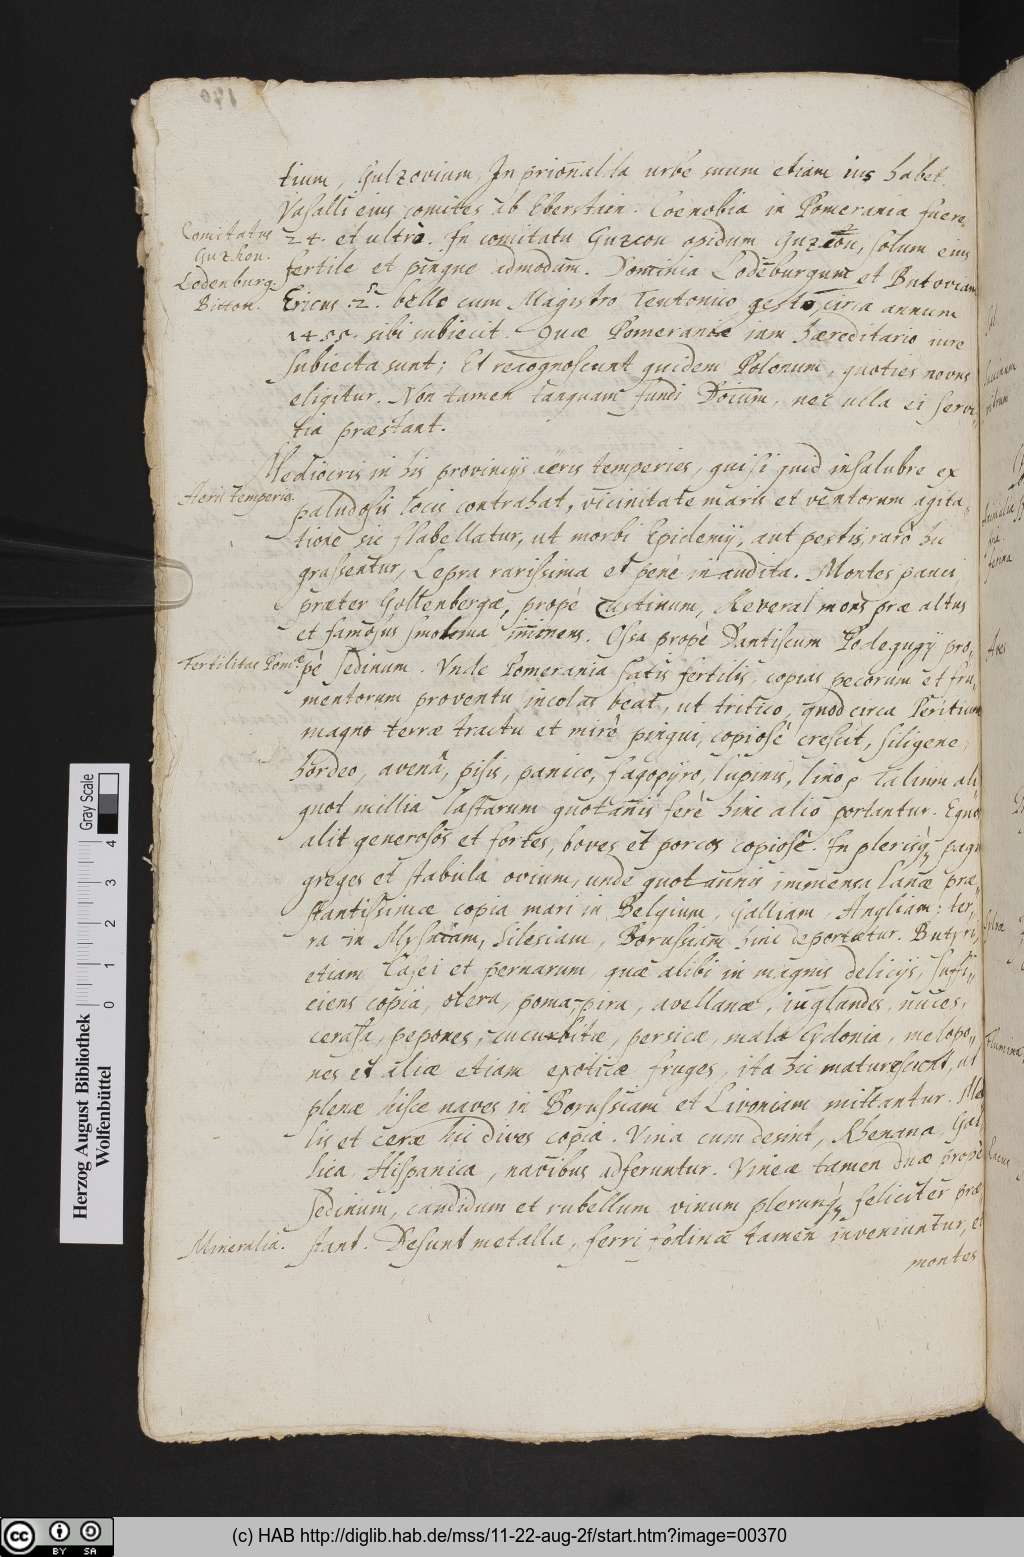 tium, Gulzovium. In prionalita urbe suum etiam ius habet.
Vasalli eius comites ab Eberstein. Coenobia in Pomerania fuere
Comitatus
Guzkou.
24. et ultrà. In comitatu Guzcou opidum Guzcou, solum eius
Lodenburg.
Bitton.
fertile et pingue admodum. Dominia Lodeburgum et Butoviam
Ericus 2. bello cum Magistro Teutonico gesto, circa annum
1455. sibi subiecit. Quæ Pomeraniæ iam hæreditario iure
subiecta sunt; Et recognoscunt quidem Polonum, quoties novus
eligitur. Non tamen tanquam fundi Dnium, nec ulla ei servi„
tia præstant.
Mediocris in his provincijs aëris temperies, qui si quid insalubre ex
Aeris Temperies.
paludosis locis contrahat, vicinitate maris et ventorum agita„
tione sic flabellatur, ut morbi Epidemij, aut pestis, rarò hic
grassentur, Lepra rarissima et penè inaudita. Montes pauci,
præter Goltenbergæ, propè Custinum, Reveral mons præ altus
et famosus Smolsina imminens. Ossa propè Dantiscum Podegugij pro„
Fertilitas Pom:æ
pè Sedinum. Vnde Pomerania satis fertilis, copias pecorum et fru„
mentorum proventu incolas beat, ut tritico, quod circa Peritium
magno terræ tractu et mirè pingui, copiosè crescit, siligene,
hordeo, avenâ, pisis, panico, fagopyro, lupinis, lino, talium ali
quot millia lastarum quotannis ferè hinc aliò portantur. Equos
alit generosos et fortes, boves et porcos copiosè. In plerisq; pagis
greges et stabula ovium, unde quotannis immensa lanæ præ„
stantissimæ copia mari in Belgium, Galliam, Angliam: ter„
ra in Mysniam, Silesiam, Borussiam hinc deportatur. Butyri„
etiam Casei et pernarum, quæ alibi in magnis delicijs, suffi„
ciens copia, olera, poma, pira, avellanæ, iuglandes, nuces,
cerasa, pepones, cucurbitæ, persicæ, mala Cydonia, melopo„
nes et aliæ etiam exoticæ fruges, ita hic maturescunt, ut
plenæ hisce naves in Borussiam et Livoniam mittantur. Mel
lis et ceræ hic dives copia. Vina cum desint, Rhenana, Gal
lica, Hispanica, navibus adferuntur. Vineæ tamen duæ propè
Sedinum, candidum et rubellum vinum plerunq; feliciter præ
Mineralia.
stant. Desunt metalla, ferri fodinæ tamen inveniuntur, et
montes
Herzog August Bibliothek
Wolfenbüttel
0 1 2 3 4
Gray Scale
cc BY SA
(c) HAB http://diglib.hab.de/mss/11-22-aug-2f/start.htm?image=00370